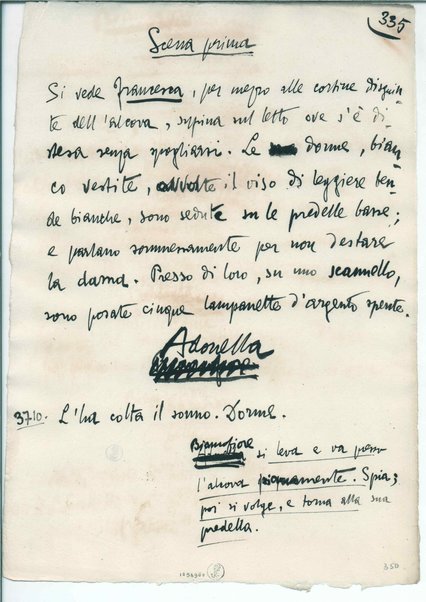 335
Scena prima
Si vede Francesca, per mezzo alle cortine disgiun-
te dell'alcova, supina sul letto ove s'è di-
stesa senza spogliarsi. Le donne, bian-
co vestite, avvolte il viso di leggiere ben-
de bianche, sono sedute su le predelle basse;
e parlano sommessamente per non destare
la dama. Presso di loro, su uno scannello,
sono posate cinque lampanette d'argento spente.
Adonella
3710. L'ha colta il sonno. Dorme.
Biancofiore si leva e va presso
l'alcova pianamente. Spia;
poi si volge, e torna alla sua
predella.
350